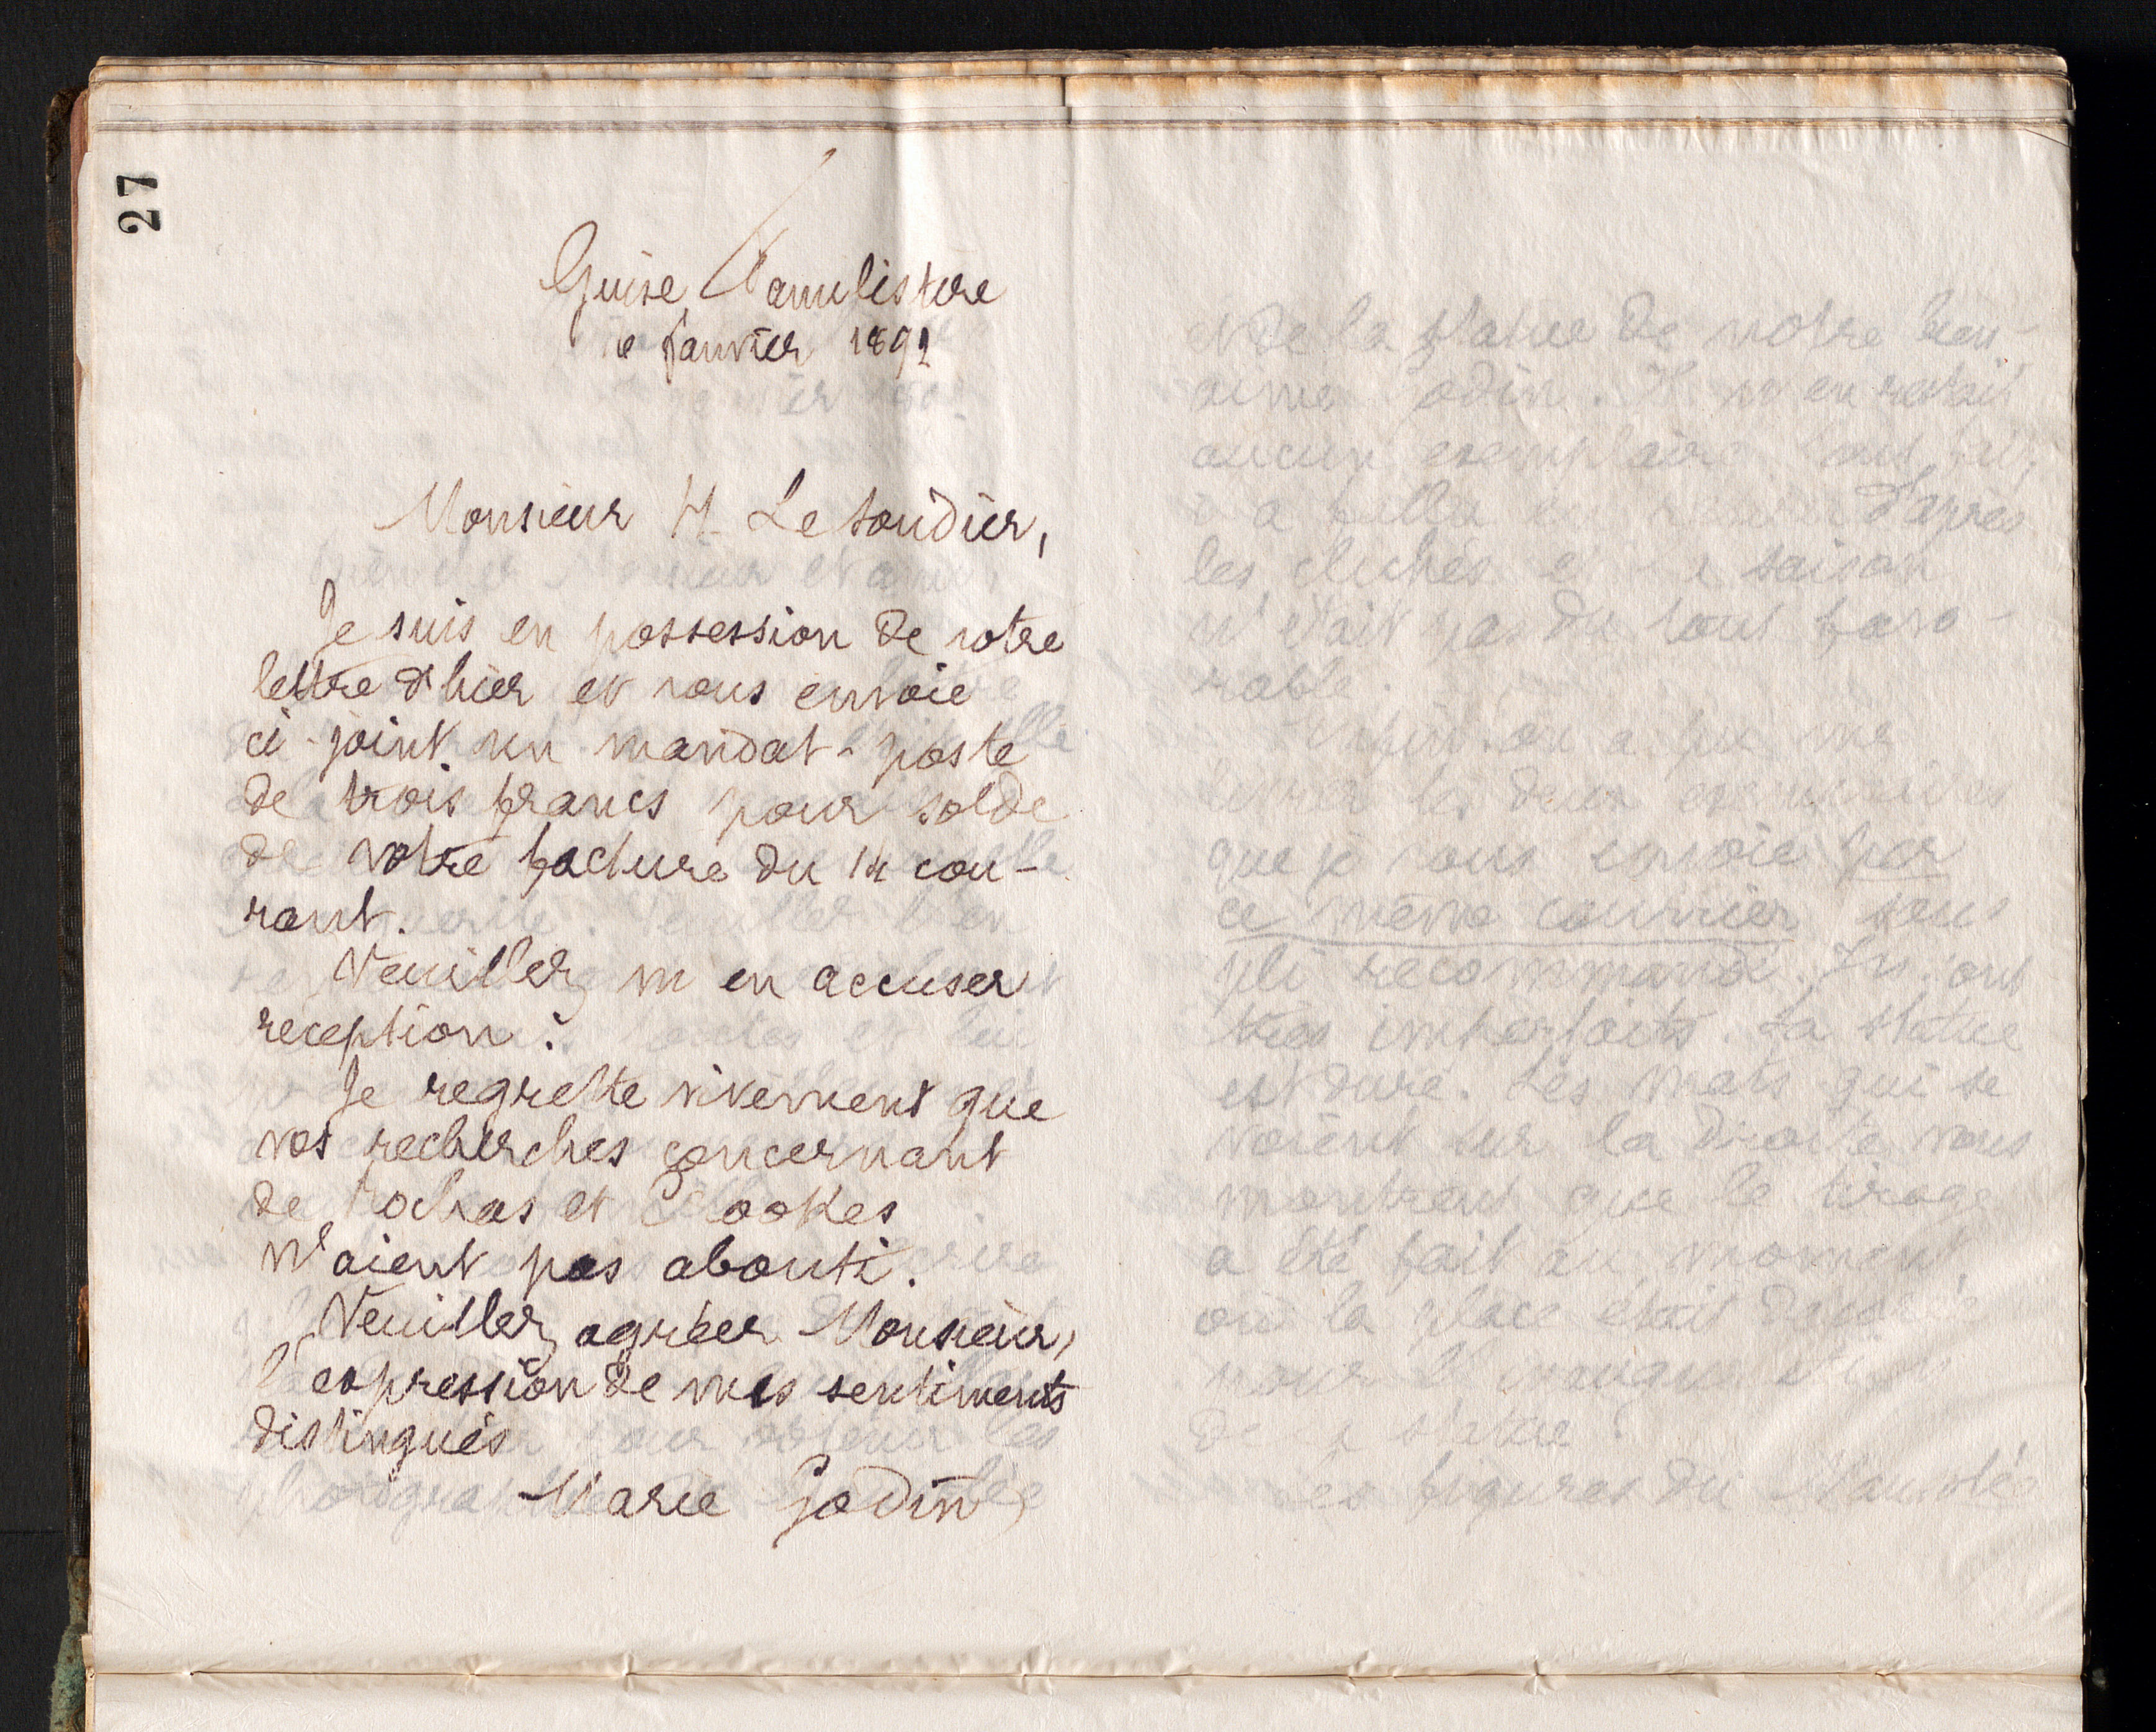 27
Guise Familistère
janvier 1892
Monsieur H. Le Soudier,
Je suis en possession de votre
lettre d'hier et vous envoie
ci-joint un mandat-poste
de trois francs pour solde
de votre facture du 14 cou-
rant.
Veuillez m'en accuser
reception.
Je regrette vivement que
vos recherches concernant
de Rochas et Crookes
n'aient pas abouti.
Veuillez agréer Monsieur,
l'expression de mes sentiments
distingués
Marie Godin
de la statue de notre bien-
aimé Godin. Il n'en restait
aucun exemplaire
a fallu d'après
les clichés et la saison
n'était pas du tout favo-
rable.
Enfin on a pu me
les deux exemplaires
que je vous envoie par
ce même courrier sous
pli recommandé. Ils sont
très imparfaits. La statue
est dure. Les mats qui se
voient sur la droite vous
montrent que le tirage
a été fait au moment
où la place était
pour l'inauguration
de la statue.
Les figures du Mausolée